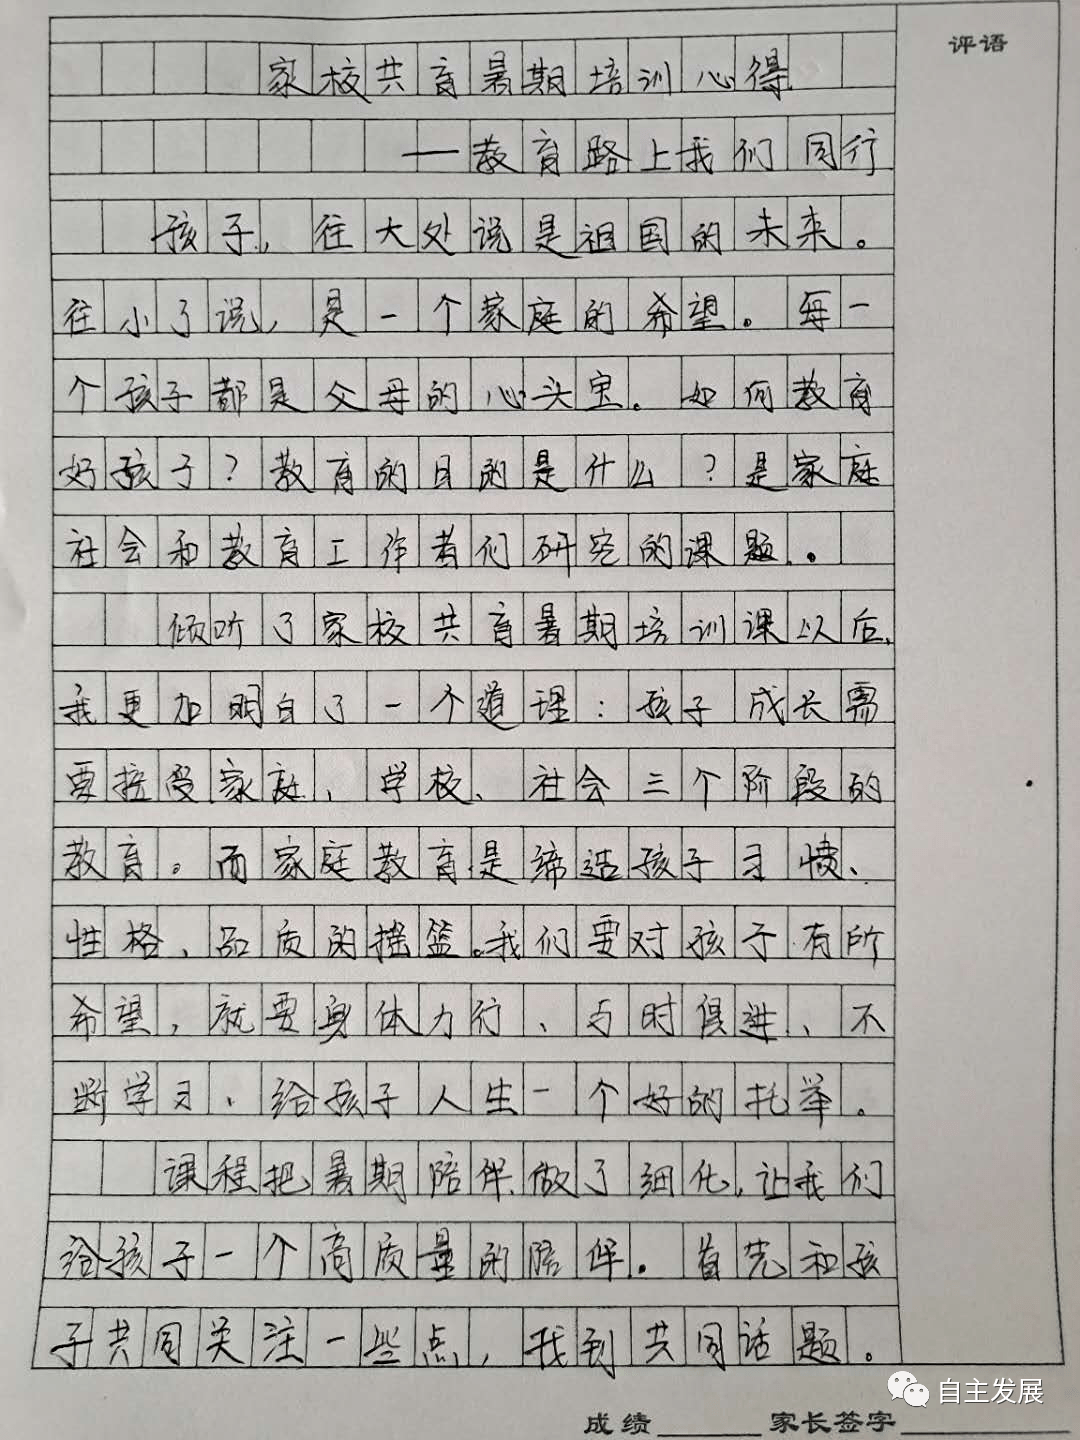 评语
家校共育暑期培训心得
——教育路上我们同行
孩子，往大处说是祖国的未来。
往小了说，是一个家庭的希望。每一
个孩子都是父母的心头宝。如何教育
好孩子？教育的目的是什么？是家庭
社会和教育工作者们研究的课题。
倾听了家校共育暑期培训课以后，
我更加明白了一个道理：孩子成长需
要接受家庭、学校、社会三个阶段的
教育。而家庭教育是缔造孩子习惯、
性格、品质的摇篮。我们要对孩子有所
希望，就要身体力行、与时俱进、不
断学习、给孩子人生一个好的托举。
课程把暑期陪伴做了细化，让我们
给孩子一个高质量的陪伴。首先和孩
子共同关注一些点，找到共同话题。
自主发展
成绩______家长签字__________